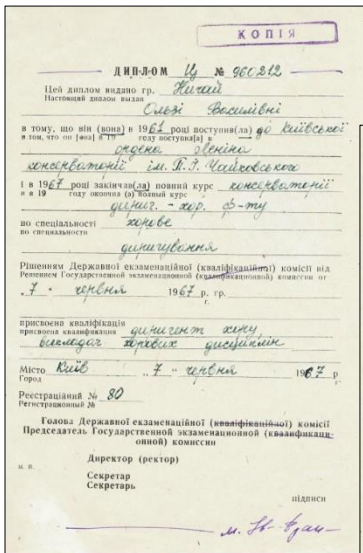 КОПІЯ
ДИПЛОМ Ц № 960212
Цей диплом видано гр. Ничай
Настоящий диплом выдан
Ользі Василівні
в тому, що він (вона) в 1961 році поступив(ла) до Київської
в том, что он (она) в 19 году поступил(а) в
ордена Леніна
консерваторії ім. П.І. Чайковського
і в 1967 році закінчив(ла) повний курс консерваторії
и в 19 году окончил(а) полный курс
дириг. - хор. ф-ту
по спеціальності хорове
по специальности
диригування
Рішенням Державної екзаменаційної (кваліфікаційної) комісії від
Решением Государственной экзаменационной (квалификационной) комиссии от
„7" червня 1967 р. гр.
г.
присвоєна кваліфікація диригент хору
присвоена квалификация
викладач хорових дисциплін
Місто Київ „7" червня 1967 р
Город г
Реєстраційний № 80
Регистрационный №
Голова Державної екзаменаційної (кваліфікаційної) комісії
Председатель Государственной экзаменационной (квалификаци-
онной) комиссии
Директор (ректор)
м. п.
Секретар
Секретарь
підписи